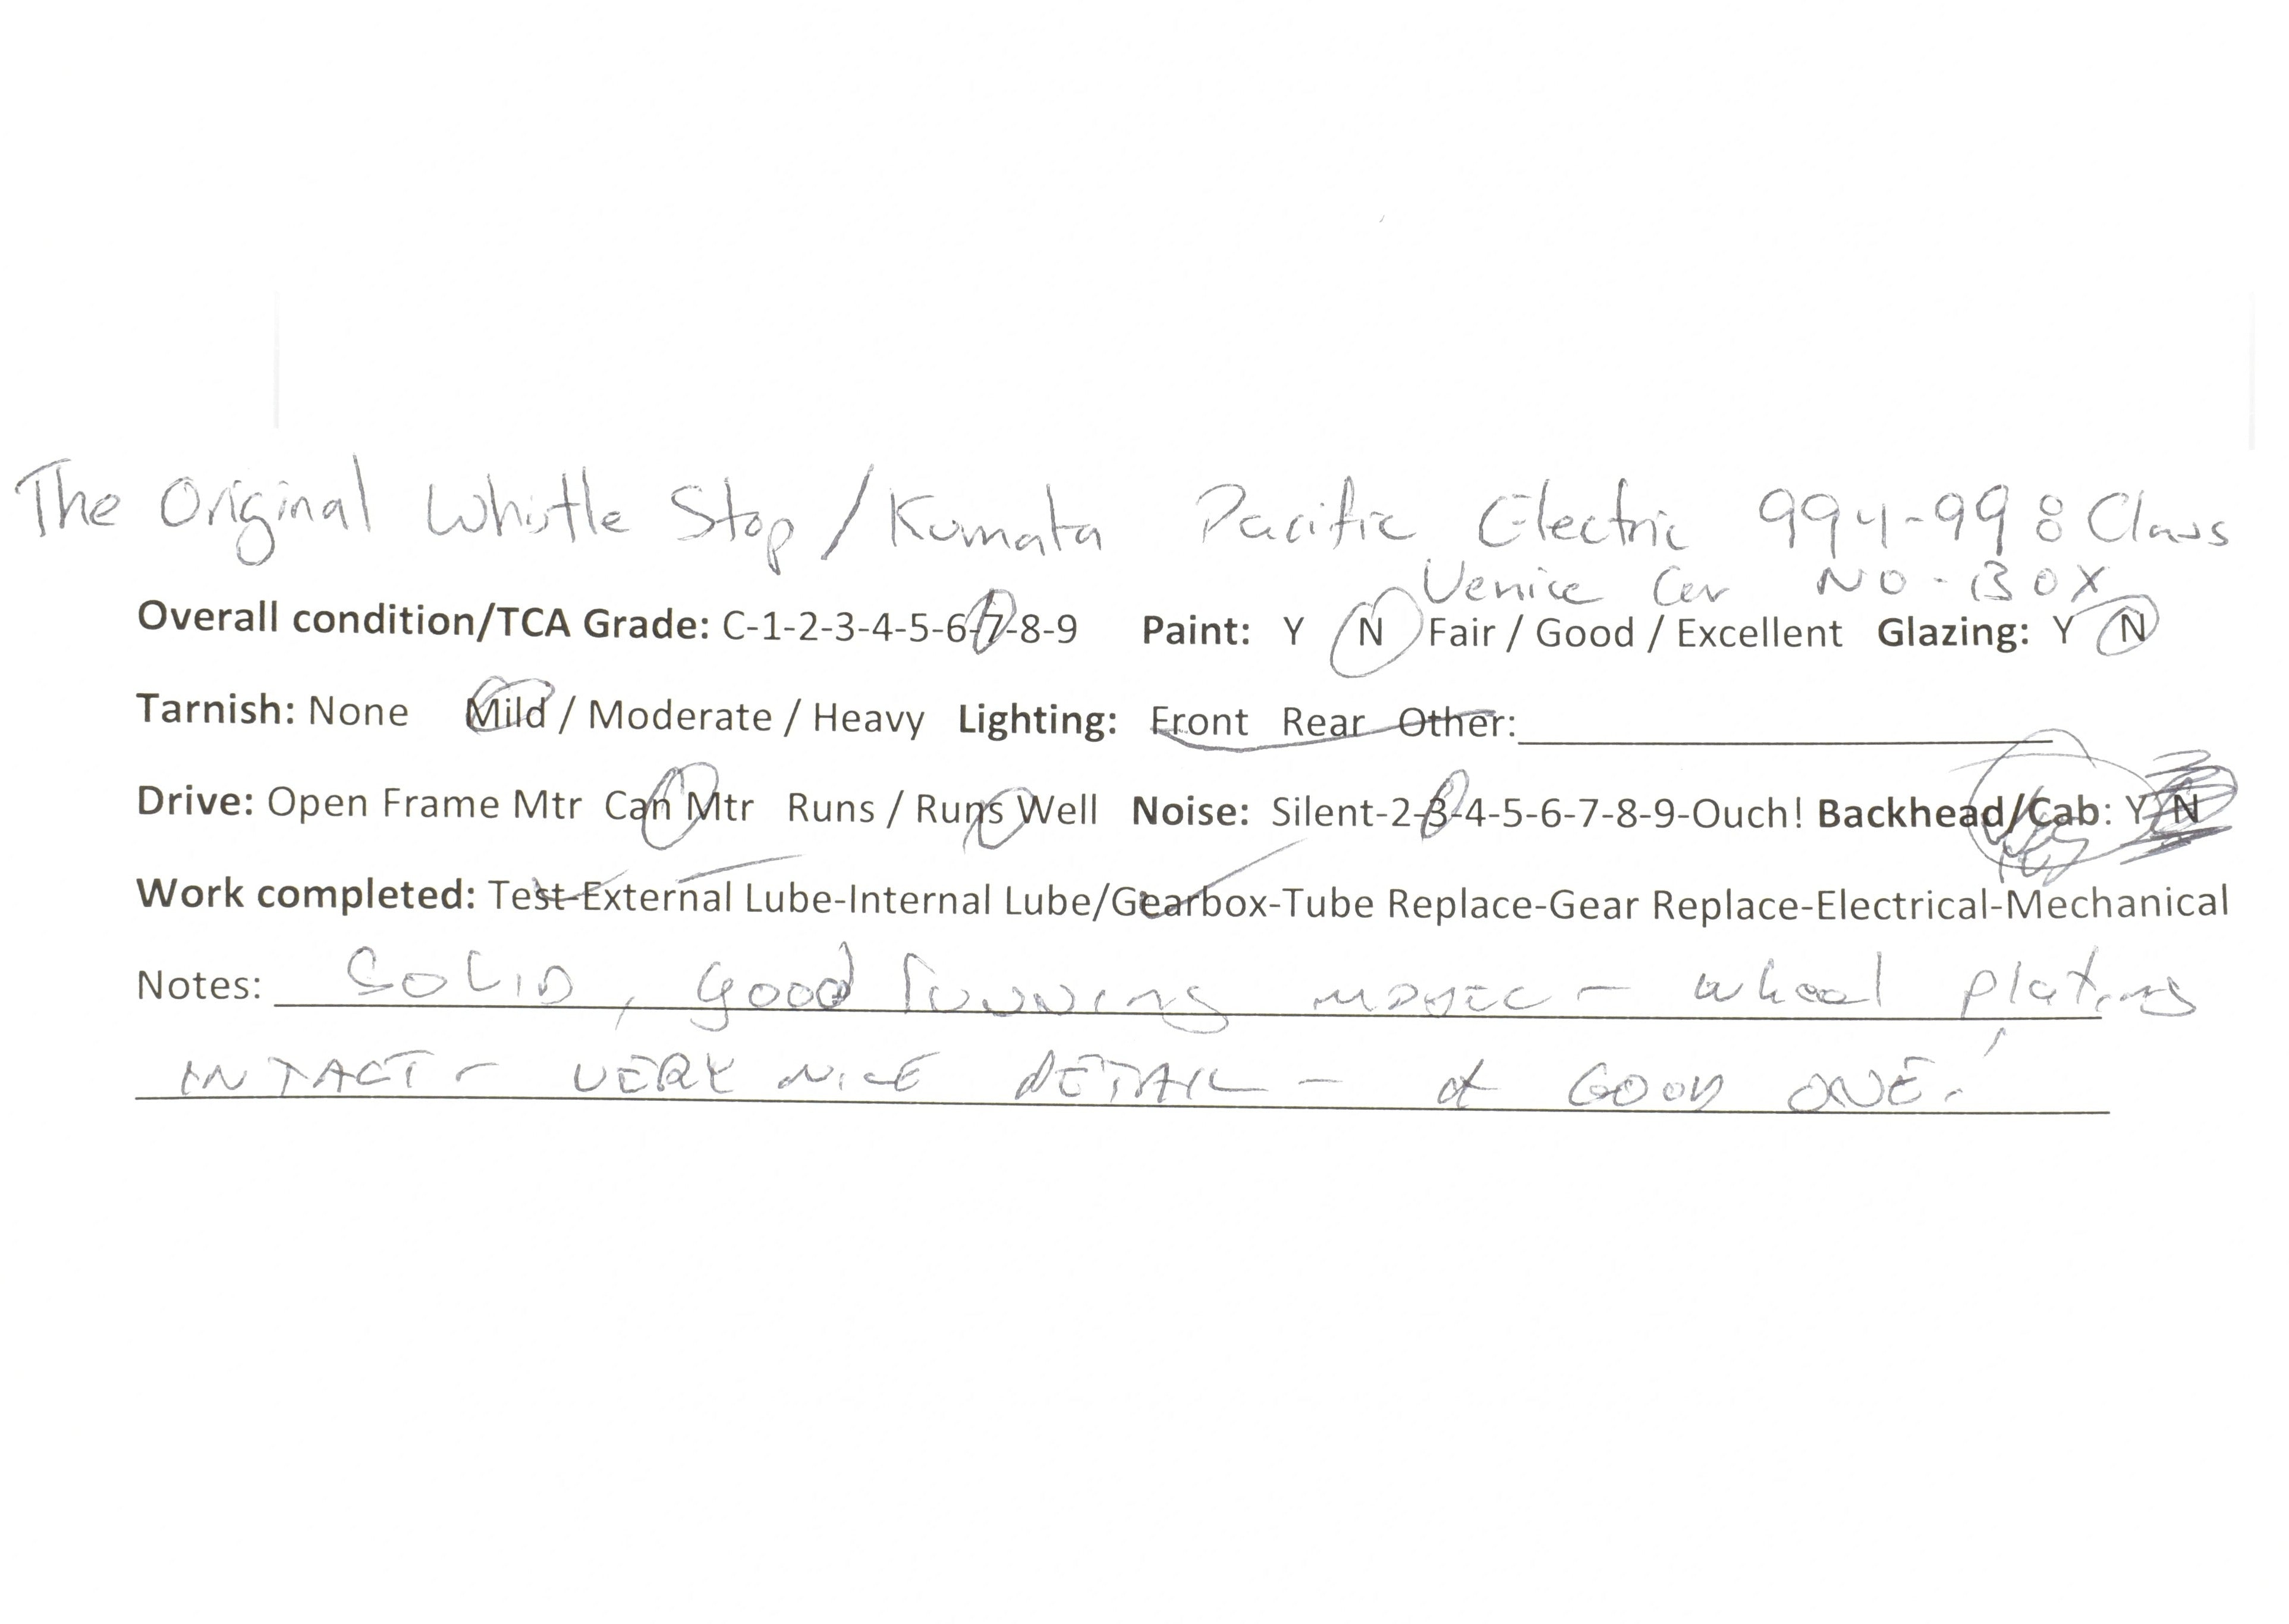 The Original Whistle Stop / Kumata Pacific Electric 994-998 Class
Venice Car NO-BOX
Overall condition/TCA Grade: C-1-2-3-4-5-6-7-8-9 Paint: Y N Fair / Good / Excellent Glazing: Y N
Tarnish: None Mild / Moderate / Heavy Lighting: Front Rear Other:
Drive: Open Frame Mtr Can Mtr Runs / Runs Well Noise: Silent-2-3-4-5-6-7-8-9-Ouch! Backhead/Cab: Y/N
Yes
Work completed: Test-External Lube-Internal Lube/Gearbox-Tube Replace-Gear Replace-Electrical-Mechanical
Notes: SOLID, good running model - wheel plating
INTACT - VERY NICE DETAIL - A GOOD ONE!